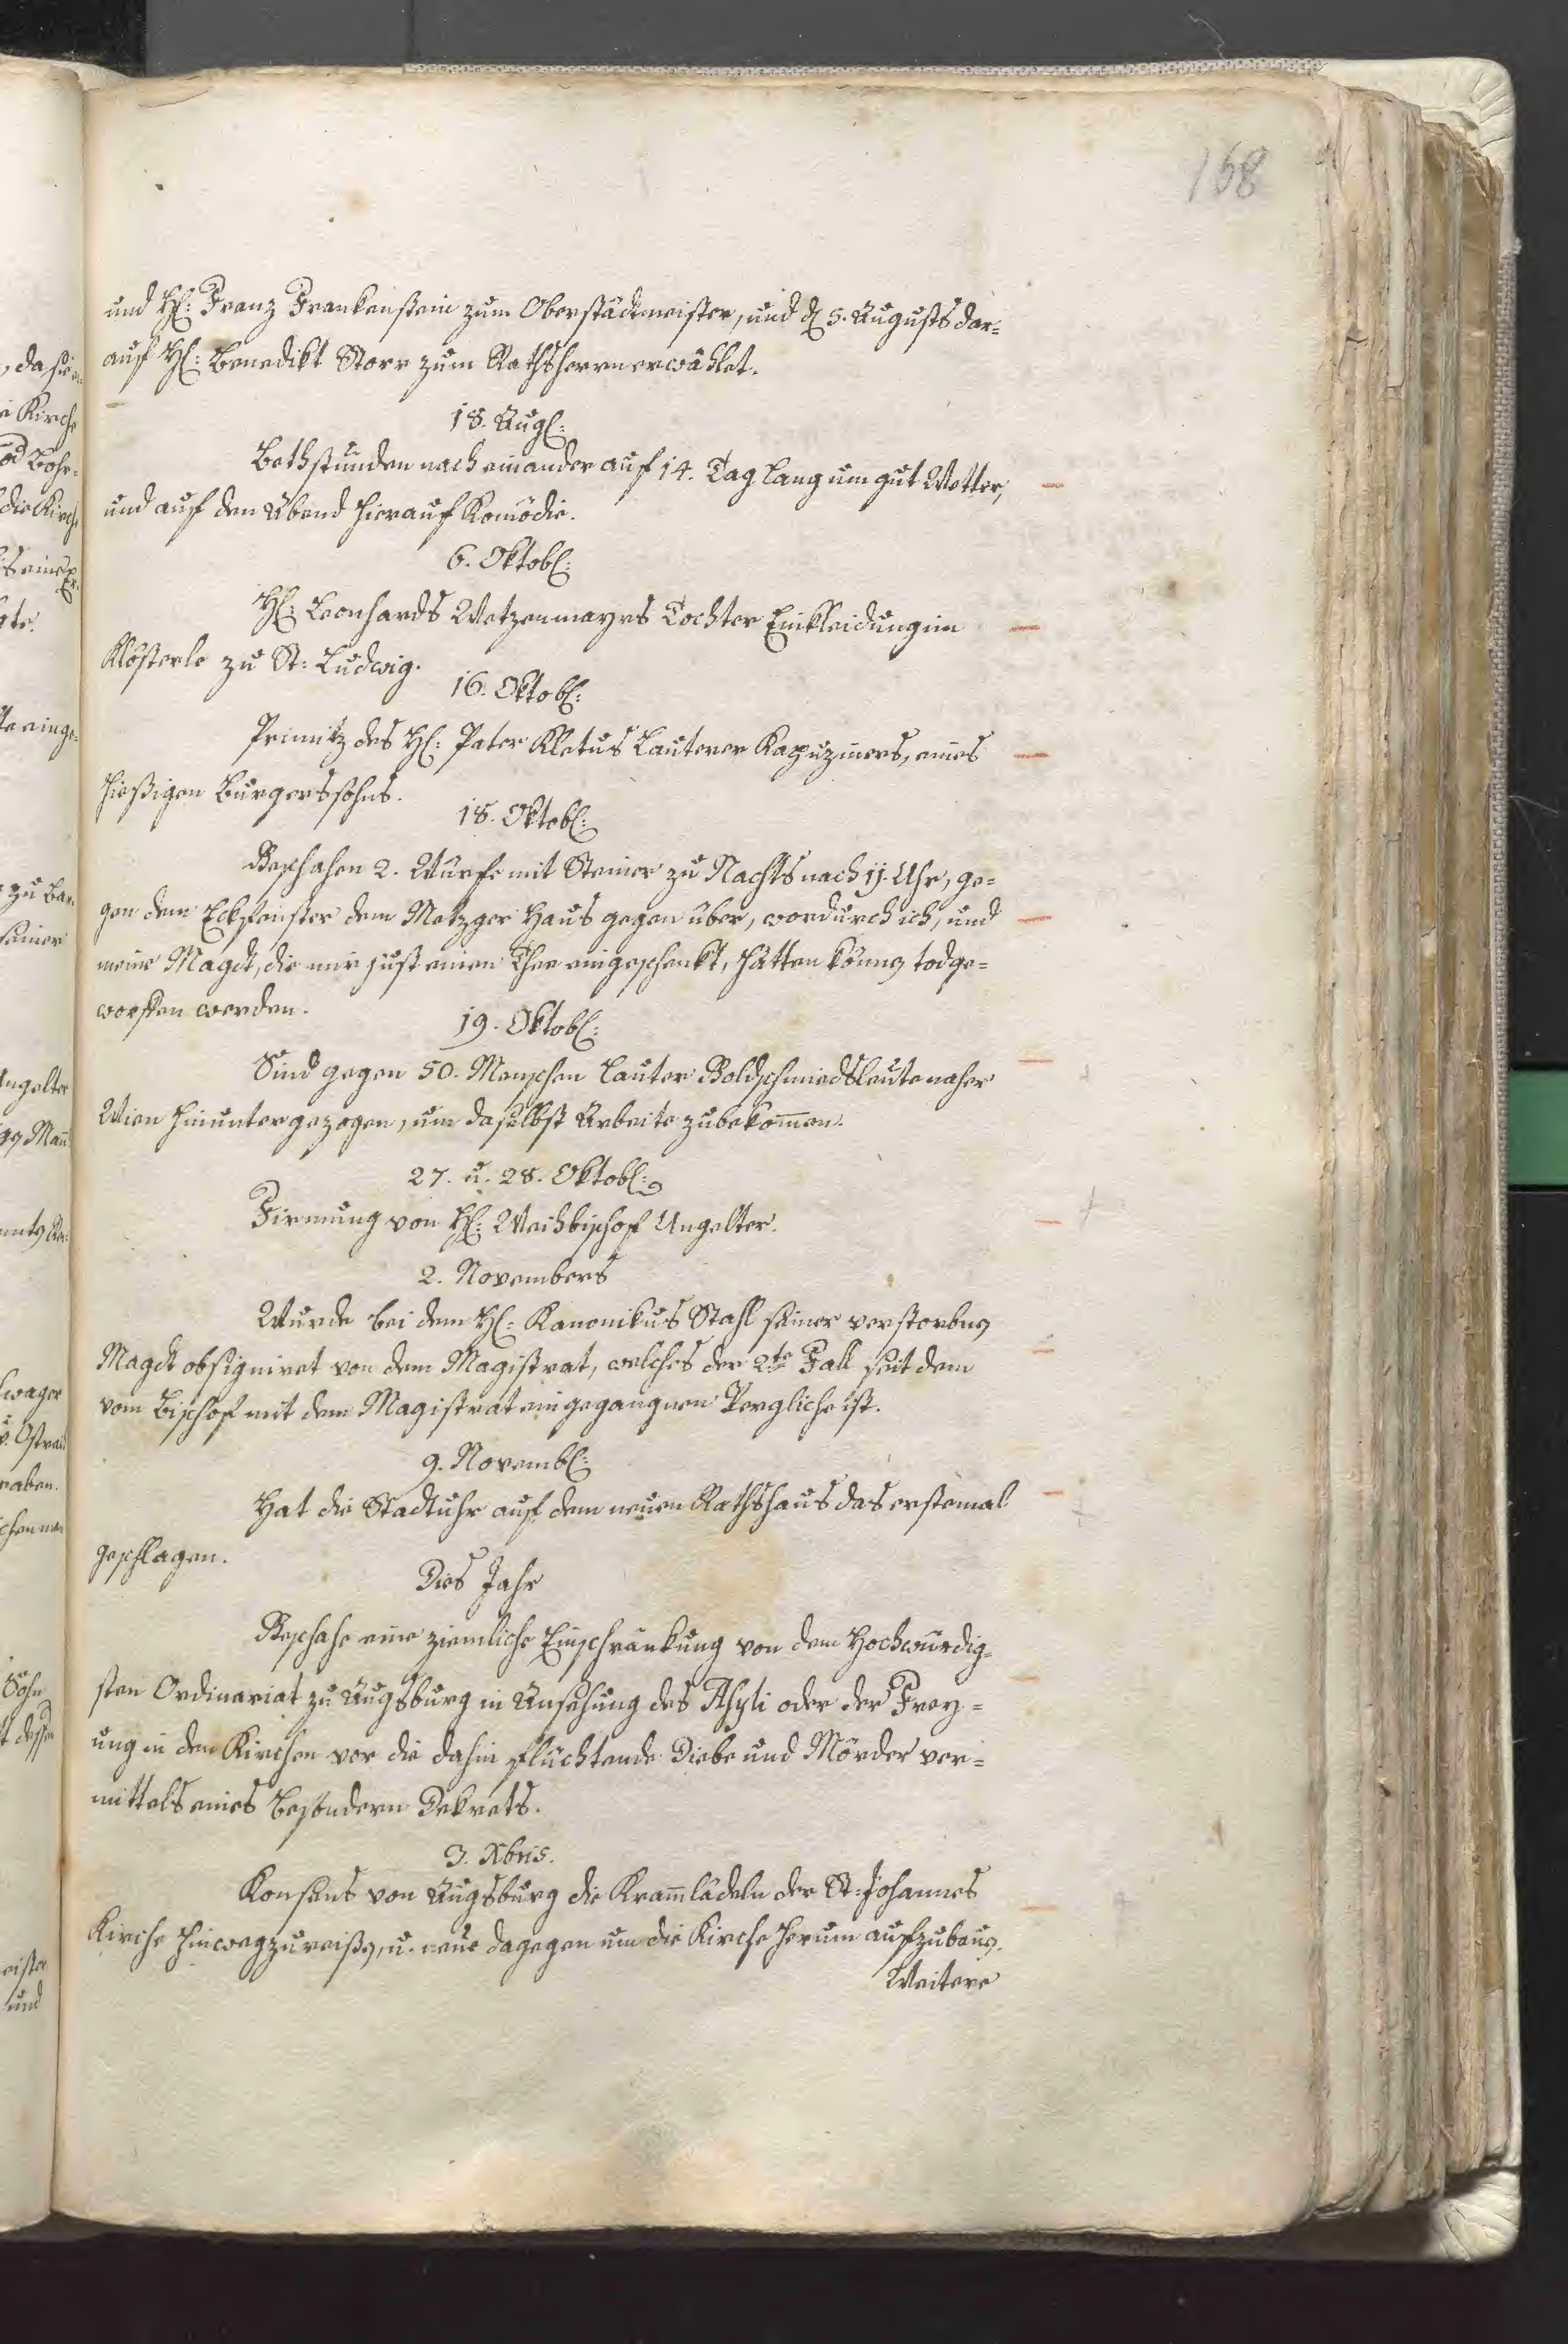 168
und H: Franz Frankenstein zum Oberstädtmeister, und d 5. Augusts dar=
auf H: Benedikt Storr zum Rathsherrn erwählet.
18. Aug:
Bethstunden nach einander auf 14. Tag lang um gut Wetter,
und auf den Abend hierauf Komödie.
6. Oktob:
H: Leonhards Wetzenmayrs Tochter Einkleidung im
Klösterle zu St: Ludwig.
16. Oktob:
Primitz des H: Pater Kletus Lauterer Kapuziners, eines
hiesigen Burgerssohns.
18. Oktob:
Geschahen 2. Würfe mit Steiner zu Nachts nach 11. Uhr, ge=
gen dem Eckfenster dem Metzger Haus gegen über, wordurch ich, und
meine Magdt, die mir just einen Thee eingeschenkt, hätten können todge=
worffen werden.
19. Oktob:
Sind gegen 50. Menschen lauter Goldschmiedsleute naher
Wien hinunter gezogen, um daselbst Arbeite zubekom̄en.
27. u. 28. Oktob:
Firmung von H: Weihbischof Ungelter.
2. Novembers
Wurde bei dem H: Kanonikus Stahl seiner verstorbnen
Magdt obsigniret von dem Magistrat, welches der 2te Fall seit dem
vom Bischof mit dem Magistrat eingegangnen Vergliche ist.
9. Novemb:
Hat die Stadtuhr auf dem neuen Rathshaus das erstemal
geschlagen.
Dies Jahr
Geschahe eine ziemliche Einschränkung von dem Hochwürdig=
sten Ordinariat zu Augsburg in Ansehung des Asyli oder der Frey=
ung in den Kirchen vor die dahin flüchtende Diebe und Mörder ver=
mittels eines besondern Dekrets.
3. Xbris.
Konsens von Augsburg die Kram̄lädeln der St: Johannes
Kirche hinwegzureissen, u. neue dagegen um die Kirche herum aufzubauen.
Weitere